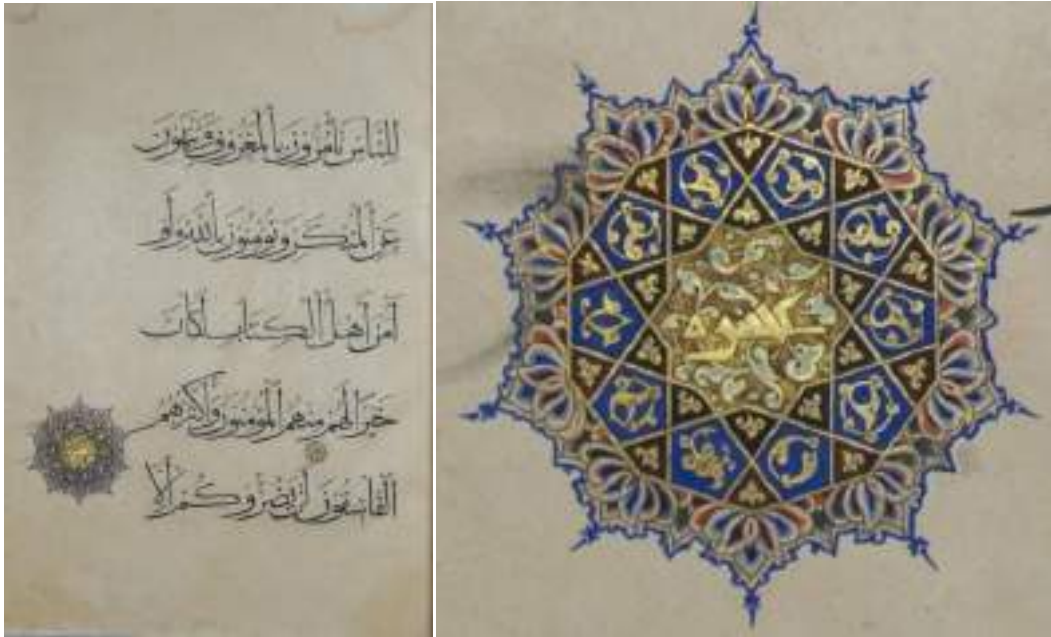 لِلنَّاسِ تَأْمُرُونَ بِالْمَعْرُوفِ وَتَنْهَوْنَ
عَنِ الْمُنْكَرِ وَتُؤْمِنُونَ بِاللَّهِ وَلَوْ
آمَنَ أَهْلُ الْكِتَابِ لَكَانَ
خَيْرًا لَهُمْ مِنْهُمُ الْمُؤْمِنُونَ وَأَكْثَرُهُمُ
الْفَاسِقُونَ لَنْ يَضُرُّوكُمْ إِلَّا